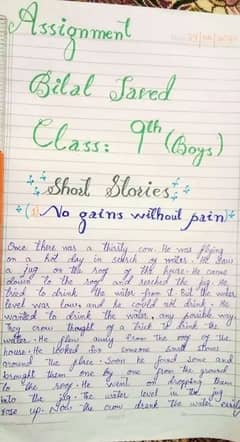 Assignment
Bilal Javed
Class: 9th (Boys)
Short Stories
(1) No gains without pain
Once there was a thirsty cow. He was flying
on a hot day in search of water. He saw
a jug on the roof of the house. He came
down to the roof and reached the jug. He
tried to drink the water from it but the water
level was low and he could not drink. He
wanted to drink the water, any possible way.
They crow thought of a trick to drink the
water. He flew away from the roof of the
house. He looked for someone small stones
around the place. Soon he found some and
brought them one by one from the ground
to the roof. He went on dropping them
into the jug. The water level in the jug
rose up. Now the crow drank the water easily